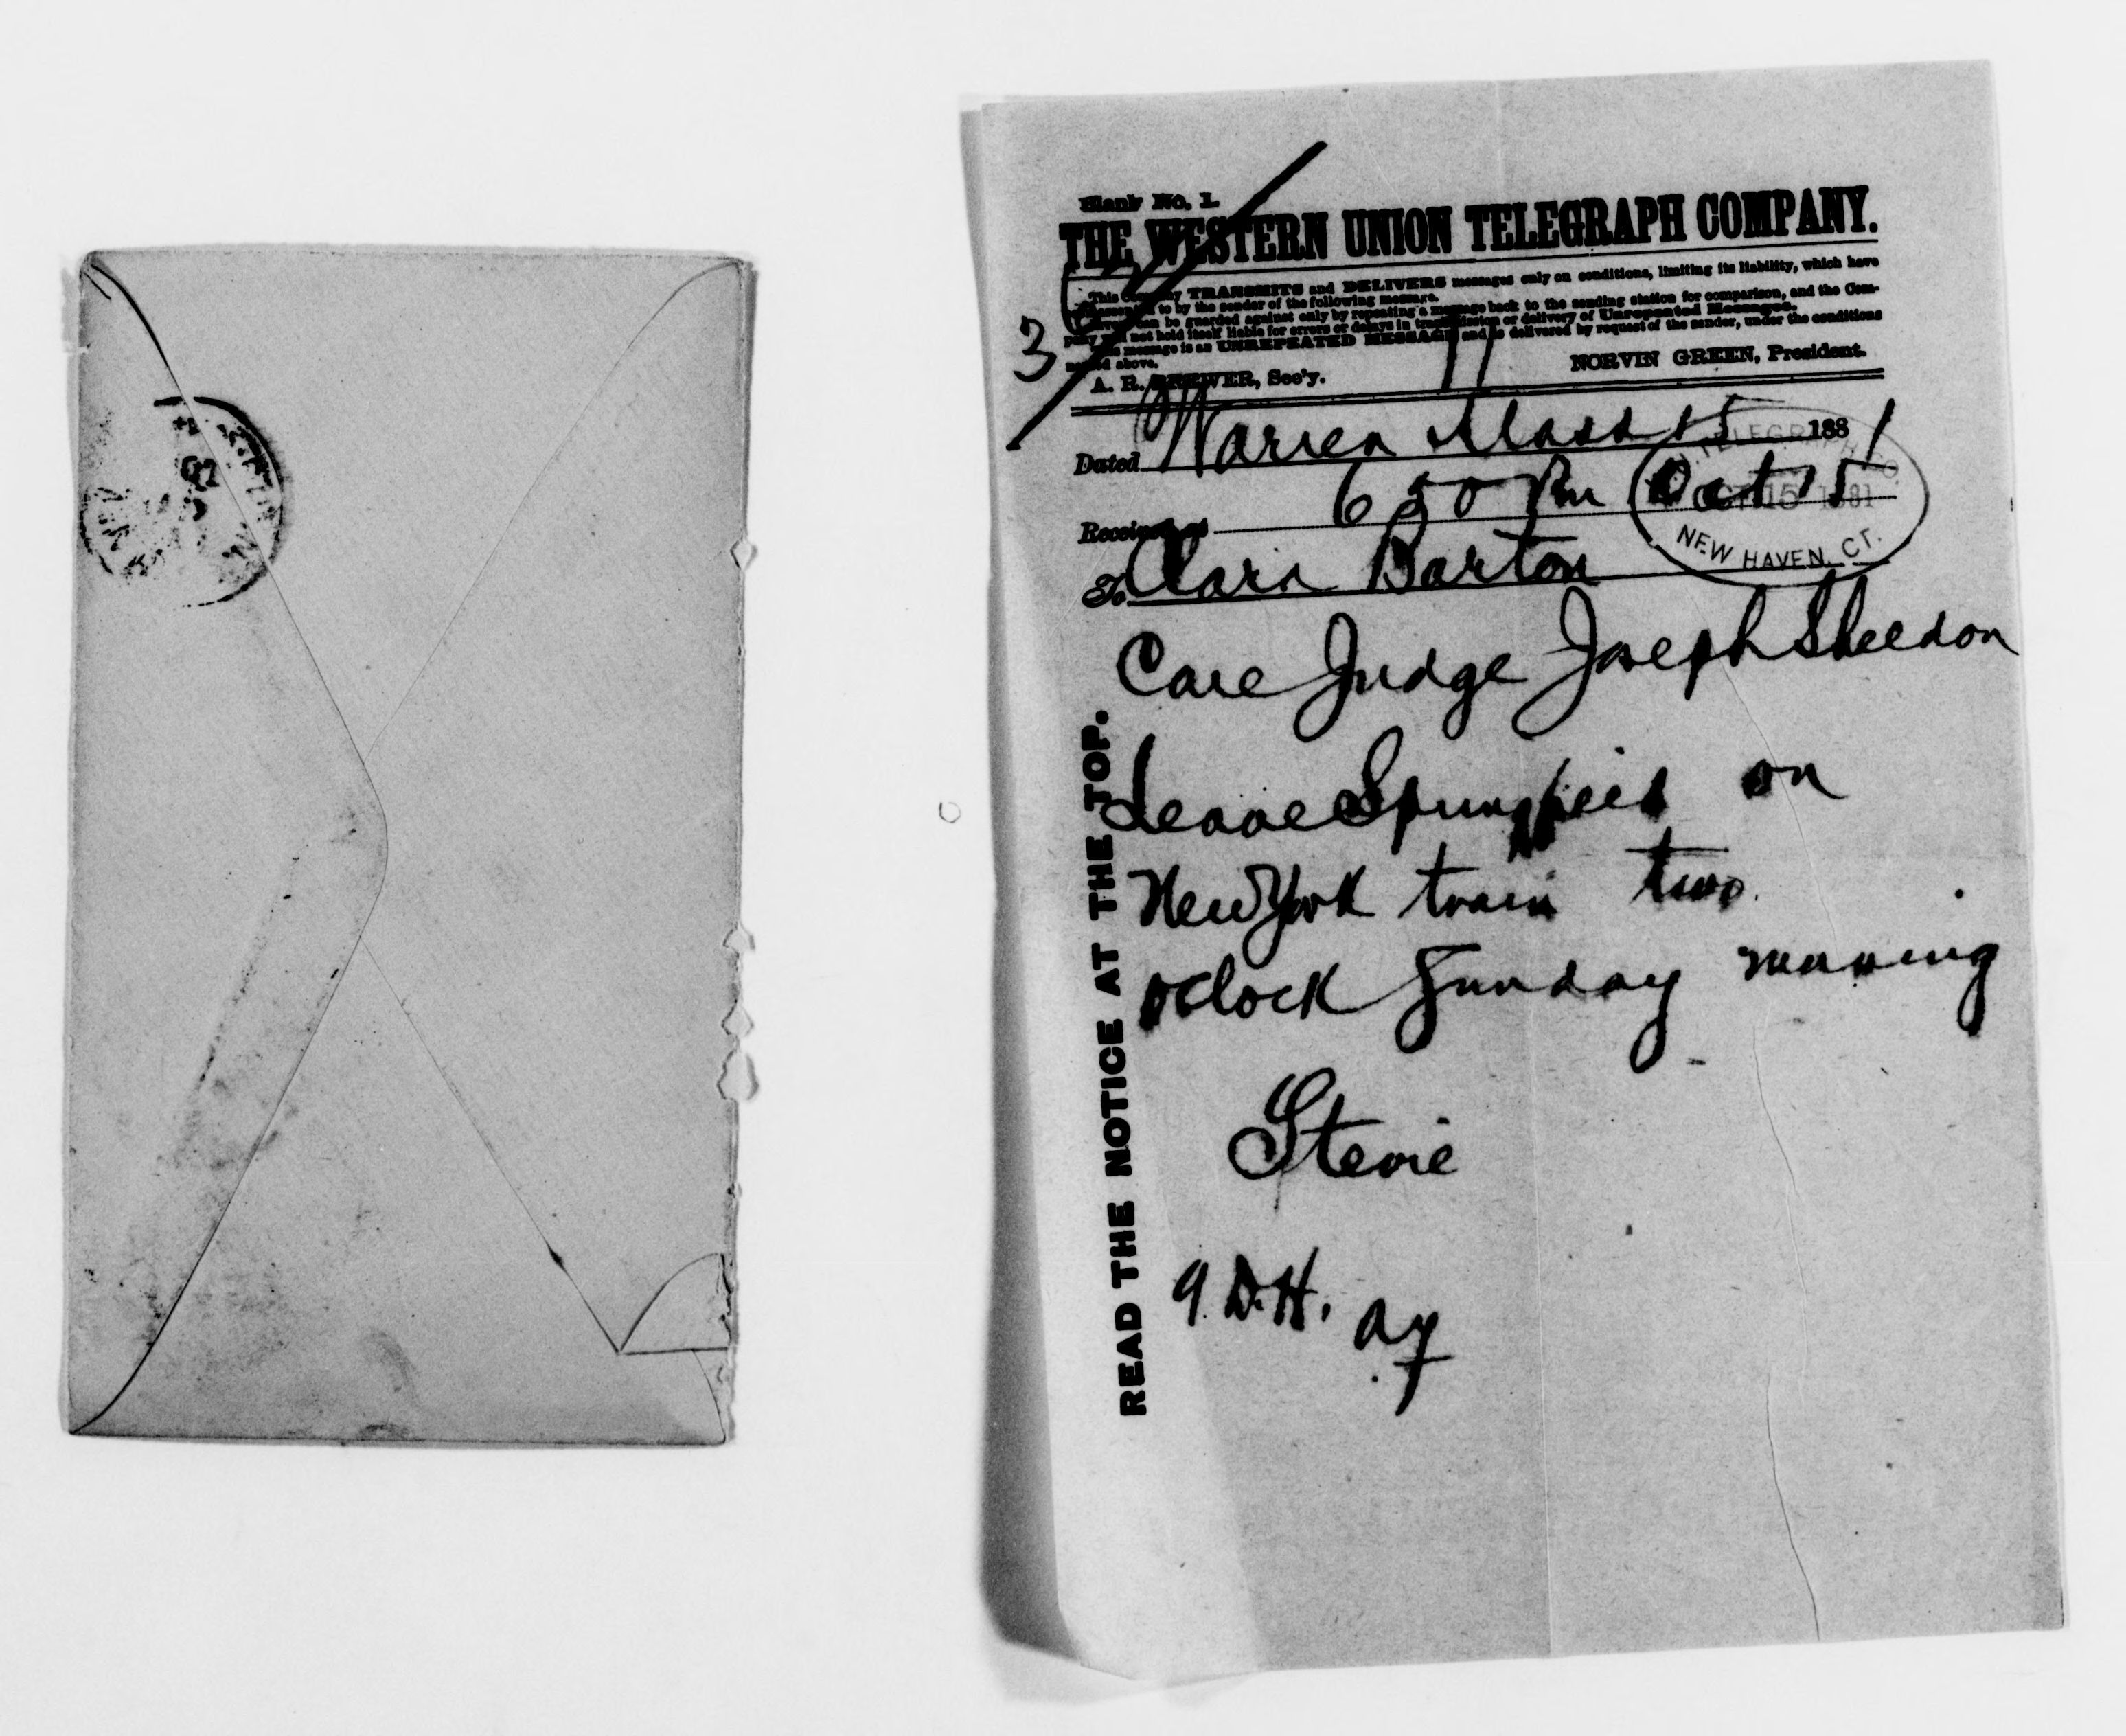 Blank No. 1.
THE WESTERN UNION TELEGRAPH COMPANY.
This Company TRANSMITS and DELIVERS messages only on conditions, limiting its liability, which have
been assented to by the sender of the following message.
Errors can be guarded against only by repeating a message back to the sending station for comparison, and the Com-
pany will not hold itself liable for errors or delays in transmission or delivery of Unrepeated Messages.
This message is an UNREPEATED MESSAGE and is delivered by request of the sender, under the conditions
named above.
A. R. BREWER, Sec'y. NORVIN GREEN, President.
3
11
Dated Warren Mass 15 1881
Received at 6 50 Pm Oct 15
TELEGRAPH CO.
OCT 15 1881
NEW HAVEN, CT.
To Clara Barton
Care Judge Joseph Sheldon
Leave Springfield on
New York train two
oclock Sunday morning
Stevie
9. D.H.
READ THE NOTICE AT THE TOP.